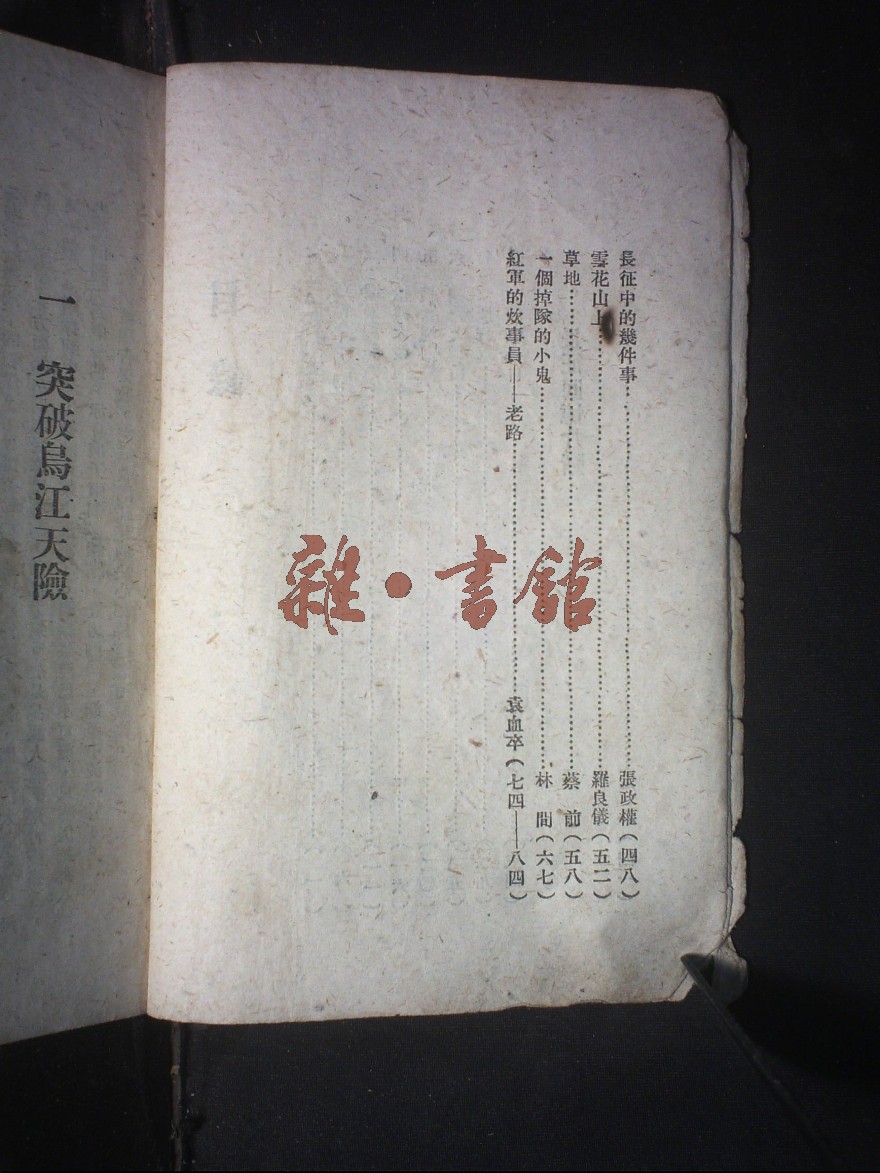 長征中的幾件事……張政權(四八)
雪花山上……羅良儀(五二)
草地……蔡 前(五八)
一個掉隊的小鬼……林 間(六七)
紅軍的炊事員——老路……袁血卒(七四——八四)
一 突破烏江天險
雜·書館